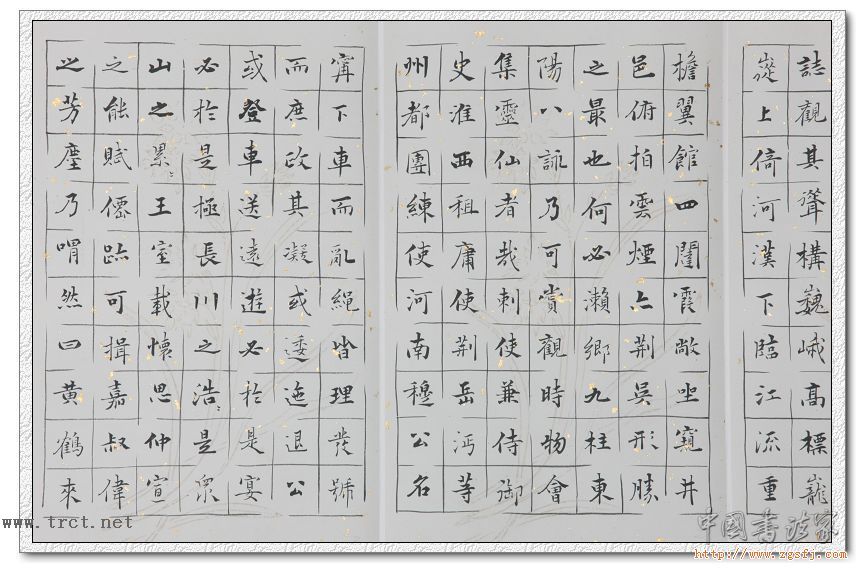 誌觀其聳構巍峨高標巃
嵸上倚河漢下臨江流重
檐翼館四闥霞敞坐窺井
邑俯拍雲煙亦荆吳形勝
之最也何必瀨鄉九柱東
陽八詠乃可賞觀時物會
集靈仙者哉刺使兼侍御
史淮西租庸使荆岳沔等
州都團練使河南穆公名
寗下車而亂繩皆理發號
而庶政其凝或逶迤退公
或登車送遠遊必於是宴
必於是極長川之浩〻是衆
山之累〻王室載懷思仲宣
之能賦僊跡可揖嘉叔偉
之芳塵乃喟然曰黄鶴來
www.trct.net
中國書法家
http://www.zgsfj.com